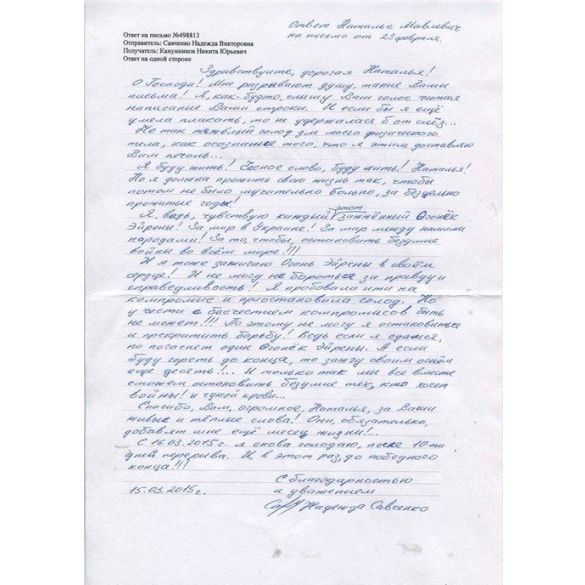 Ответ Наталье Мавлевич
на письмо от 23 февраля.
Ответ на письмо №498813
Отправитель: Савченко Надежда Викторовна
Получатель: Канунников Никита Юрьевич
Ответ на одной стороне
Здравствуйте, дорогая Наталья!
О Господи! Мне разрывают душу, такие Ваши
письма! Я, как будто, слышу Ваш голос читая
написанные Вами строки. И если бы я ещё
умела плакать, то не удержалась б от слёз...
Не так тяжёлый голод для моего физического
тела, как осознание того, что я этим доставляю
Вам печаль...
Я буду жить! Честное слово, буду жить! Наталья!
Но я должна прожить свою жизнь так, чтобы
потом не было мучительно больно, за бесцельно
прожитые годы!
Я, ведь, чувствую каждый этот зажжённый Огонёк
Эйрены! За мир в Украине! За мир между нашими
народами! За то, чтобы, остановить безумие
войны во всём мире!!!
И я тоже зажигаю Огонь Эйрены в своём
сердце! И не могу не бороться за правду и
справедливость! Я пробовала идти на
компромис и приостановила голод. Но
у чести с бесчестием компромисов быть
не может!!! По этому не могу я остановиться
и прекратить борьбу! Ведь если я сдамся,
то погаснет один Огонёк Эйрены. А если
буду гореть до конца, то зажгу своим огнём
ещё десять!... И только так мы все вместе
сможем остановить безумие тех, кто хочет
войны! и чужой крови...
Спасибо, Вам, огромное, Наталья, за Ваши
живые и тёплые слова! Они, обязательно,
добавят мне ещё месяц жизни!..
С 16.03.2015 г. я снова голодаю, после 10-ти
дней перерыва. И в этот раз, до победного
конца!!!
С благодарностью
15.03.2015г. и уважением
Надежда Савченко